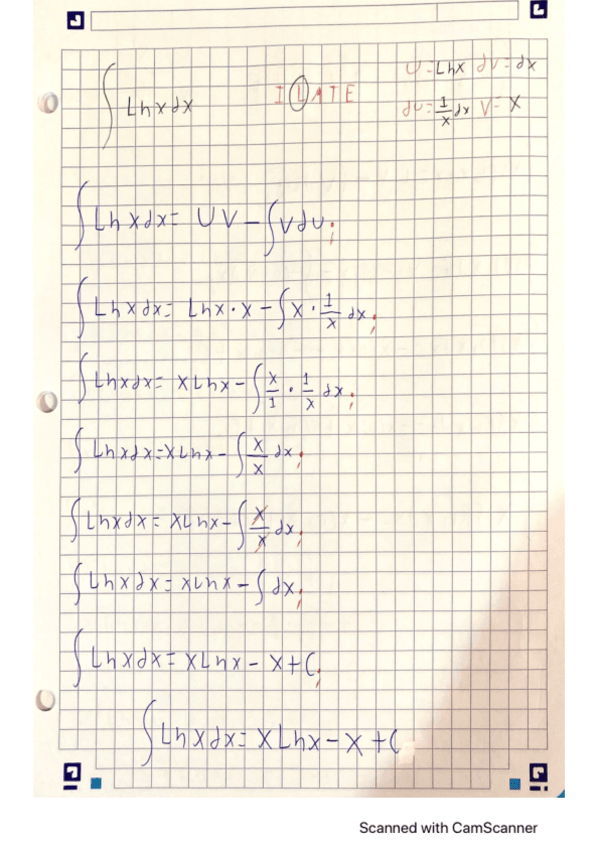 ∫ Lnxdx   ILATE   U=Lnx dv=dx
du=1/x dx V=X
∫ Lnxdx= UV-∫vdu;
∫ Lnxdx= Lnx·x-∫x·1/x dx;
∫ Lnxdx= XLnx-∫x/1·1/x dx;
∫ Lnxdx=XLnx-∫x/x dx;
∫ Lnxdx= XLnx-∫x/x dx;
∫ Lnxdx=XLnx-∫dx;
∫ Lnxdx=XLnx-X+C;
∫ Lnxdx=XLnx-X+C
Scanned with CamScanner